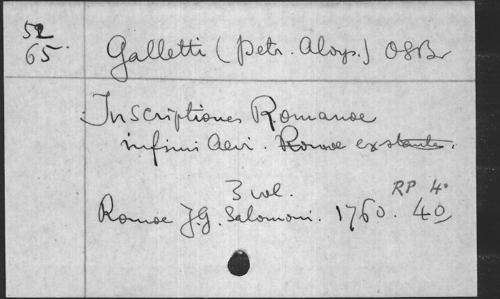 52
65.
Galletti (Petr. Aloys.) OSB
Inscriptiones Romanae
infimi Aevi. Romae exstantes.
3 vol.
RP 4°
Romae J.G. Salomoni. 1760. 4º